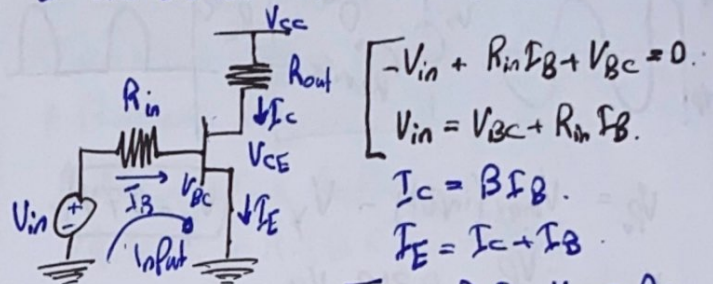 Vcc
Rout
Rin
↓Ic
VCE
VBC
IB
↓IE
Vin
+
-
Input
-Vin + RinIB + VBC = 0.
Vin = VBC + Rin IB.
Ic = βIB.
IE = Ic + IB.